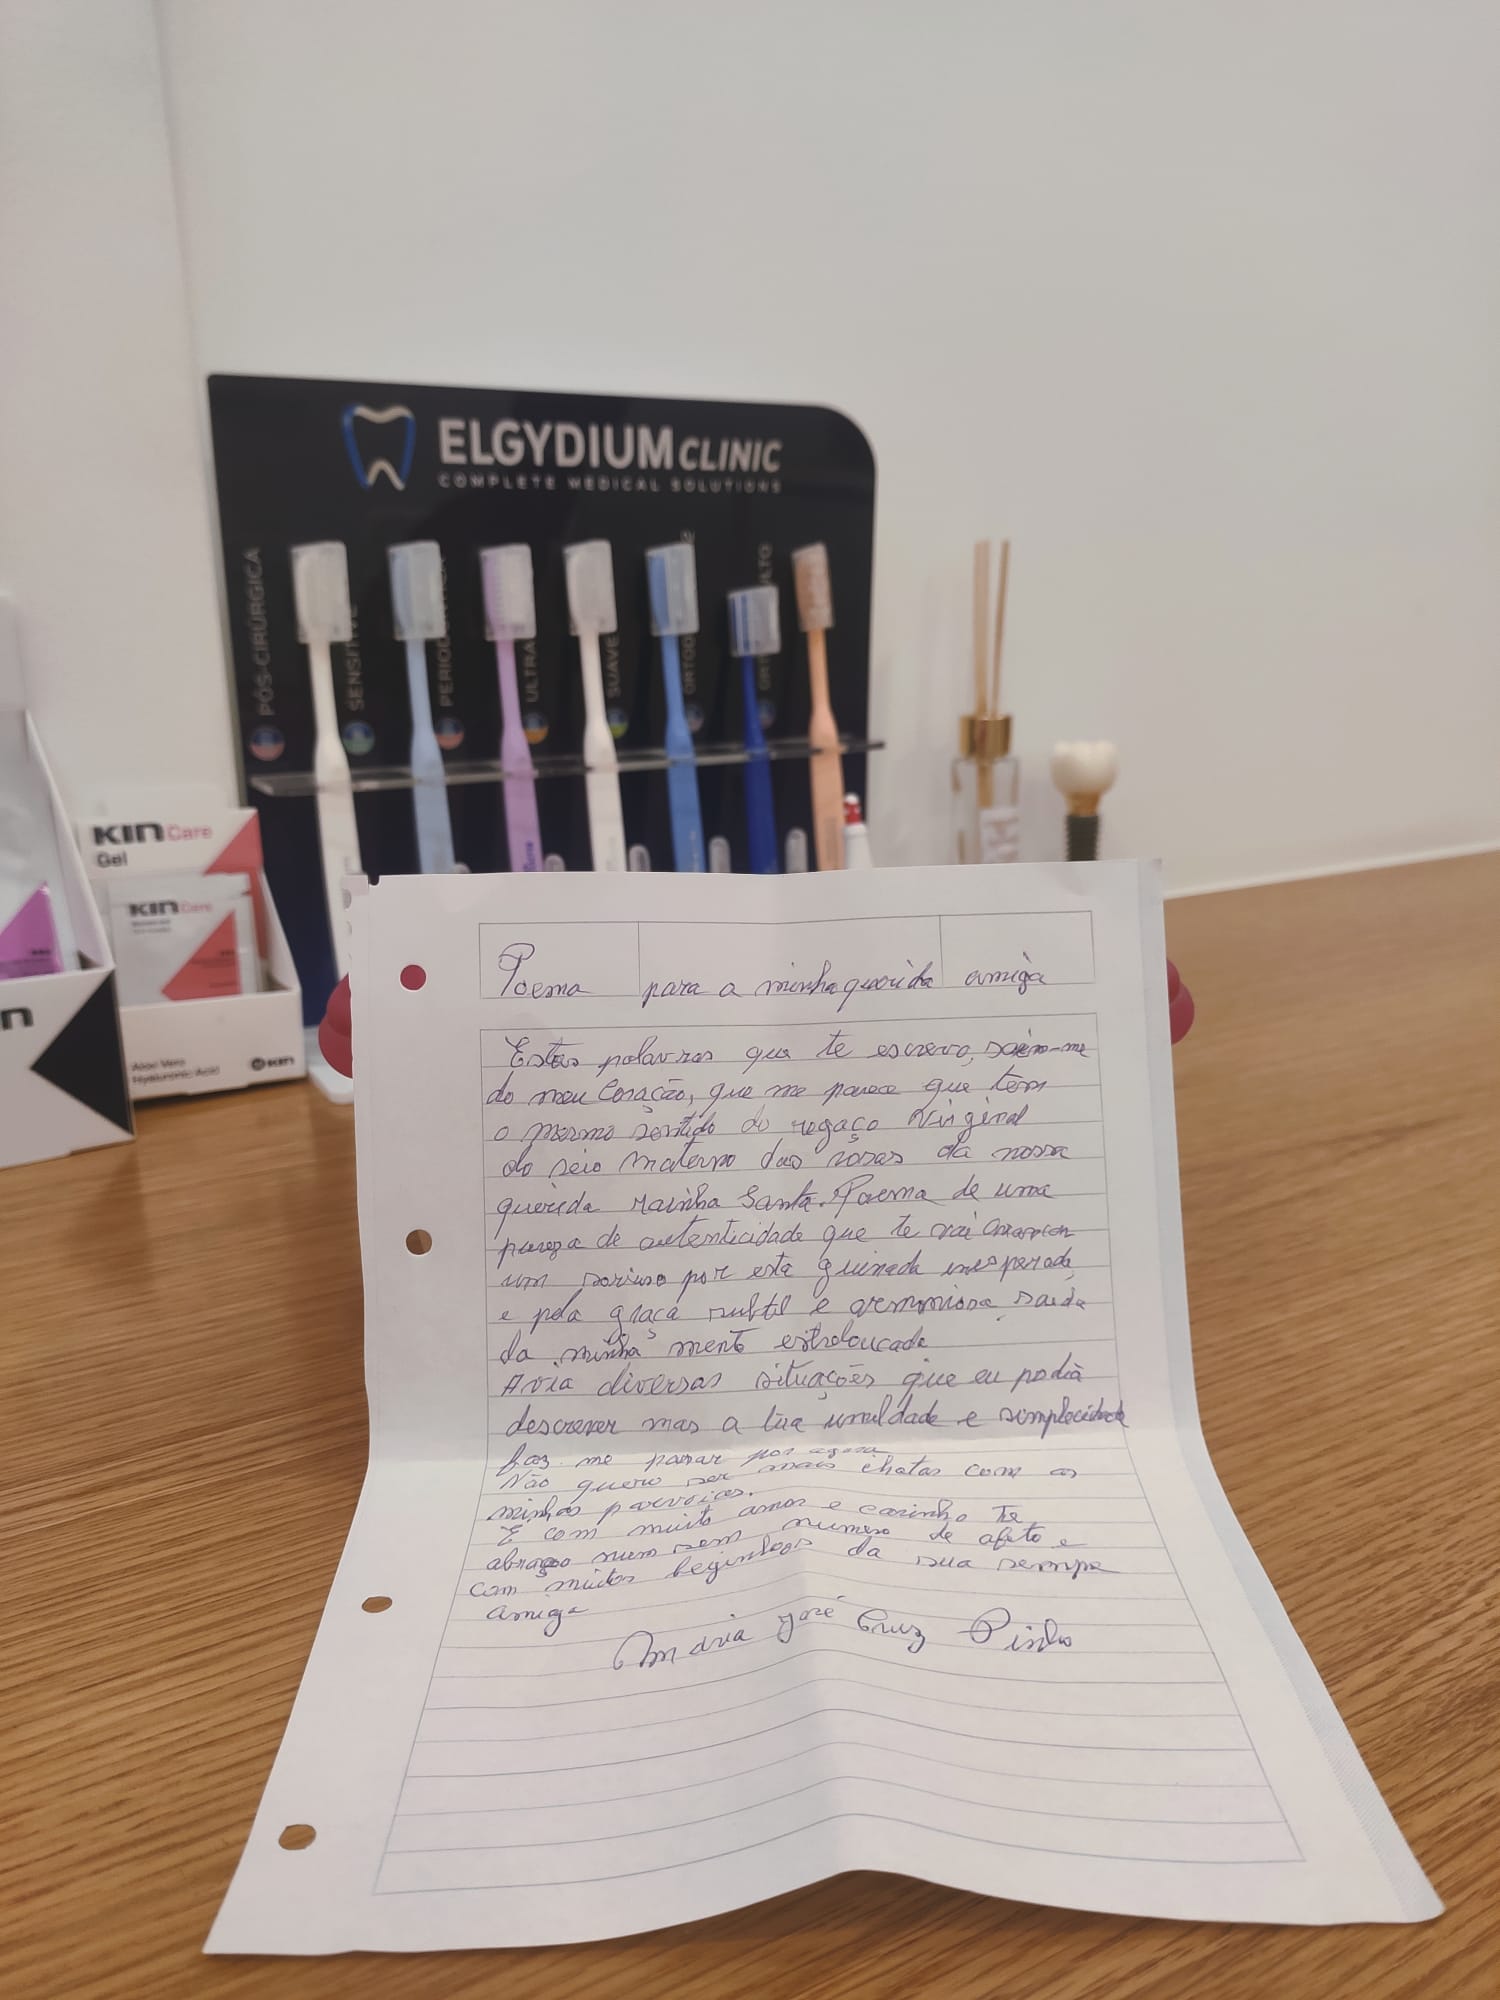 ELGYDIUM CLINIC
COMPLETE MEDICAL SOLUTIONS
PÓS-CIRÚRGICA
SENSITIVE
ULTRA
SUAVE
KIN Care
Gel
KIN Care
Aloe Vera
Hyaluronic Acid
KIN
Poema para a minha querida amiga
Estas palavras que te escrevo, saem-me
do meu Coração, que me parece que tem
o mesmo sentido do regaço Virginal
do seio materno das rosas da nossa
querida rainha Santa. Poema de uma
pureza de autenticidade que te vai
um sorriso por esta guinada inesperada
e pela graça subtil e armoniosa saida
da minha mente estraloucada
Avia diversas situações que eu podia
descrever mas a tua umildade e simplecidade
faz me parar por agora
Não quero ser mais chatas com as
minhas parvoices.
É com muito amor e carinho te
abraço num sem numero de afeto e
com muitos beijinhos da sua sempre
amiga
Maria José Cruz Pinho